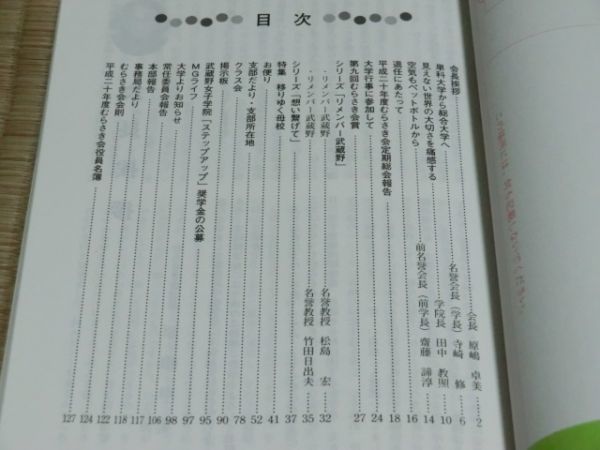 目次
会長挨拶 会長 原嶋 卓美 2
単科大学から総合大学へ 名誉会長(学長) 寺崎 修 6
見えない世界の大切さを痛感する 学院長 田中 教照 10
空気もペットボトルから 前名誉会長(前学長) 齋藤 諦淳 14
退任にあたって 16
平成二十年度むらさき会定期総会報告 18
大学行事に参加して 24
第九回むらさき会賞 27
シリーズ「リメンバー武蔵野」
・リメンバー武蔵野 名誉教授 松島 宏 32
・リメンバー武蔵野 名誉教授 竹田日出夫 35
シリーズ「想い繋げて」 37
特集 移りゆく母校 41
お便り 52
支部だより・支部所在地 78
クラス会 90
掲示板 95
武蔵野女子学院「ステップアップ」奨学金の公募 97
MGライフ 98
大学よりお知らせ 106
常任委員会報告 117
本部報告 118
事務局だより 122
むらさき会会則 124
平成二十年度むらさき会役員名簿 127